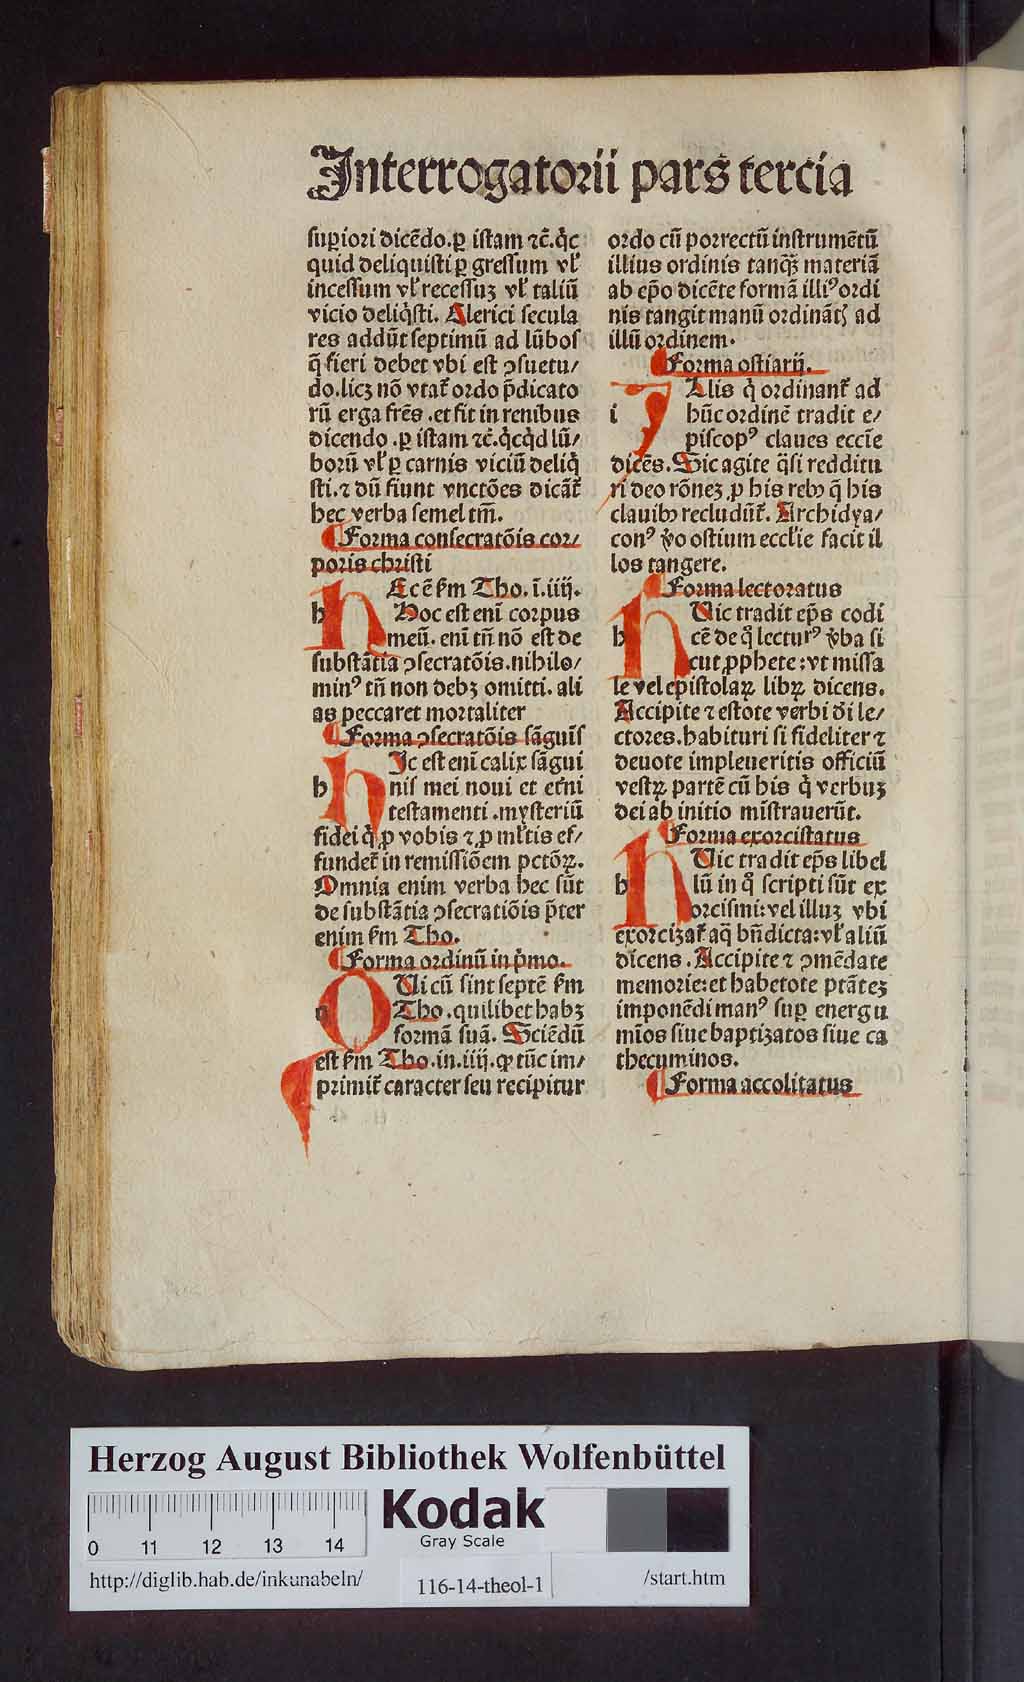 Interrogatorii pars tercia
suꝑiori dicẽdo.ꝑ istam ⁊c̃.q̇c
quid deliquisti ꝑ gressum vl̕
incessum vl̕ recessuꝫ vl̕ taliũ
vicio deliq̇sti. Clerici secula
res addũt septimũ ad lũbos
q̃ fieri debet vbi est ↄsuetu/
do.licꝫ nõ vtat̃ ordo p̃dicato
rũ erga fr̃es .et fit in renibus
dicendo .ꝑ istam ⁊c̃.q̇cq̇d lũ/
borũ vl̕ ꝑ carnis viciũ deliq̇
sti.⁊ dũ fiunt vnctões dicãt̃
hec verba semel tm̃.
Forma consecratõis cor/
poris christi
h
Ec ẽ ẜm Tho. ĩ.iiij.
Hoc est eni corpus
meũ. eni tñ nõ est de
substãtia ↄsecratõis.nihilo/
minꝰ tñ non debꝫ omitti. ali
as peccaret mortaliter
Forma ↄsecratõis sãguĩs
h
Ic est eni calix sãgui
nis mei noui et et̕ni
testamenti .mysteriũ
fidei q̇ ꝓ vobis ⁊ ꝓ ml̕tis ef/
fundet̃ in remissiõem pctõꝝ.
Omnia enim verba hec sũt
de substãtia ↄsecratiõis p̃ter
enim ẜm Tho.
Forma ordinũ in p̕mo.
o
Ui cũ sint septẽ ẜm
Tho.quilibet habꝫ
formã suã. Sciẽdũ
est ẜm Tho.in.iiij.ꝙ tũc im/
primit̃ caracter seu recipitur
ordo cũ porrectũ instrumẽtũ
illius ordinis tanq̃ꝫ materiã
ab ep̃o dicẽte formã illiꝰ ordi
nis tangit manũ ordinãtꝭ ad
illũ ordinem.
Forma ostiarij.
i
Llis q̇ ordinant̃ ad
hũc ordinẽ tradit e/
piscopꝰ claues eccĩe
dicẽs. Sic agite q̃si redditu
ri deo rõneꝫ ꝓ his rebꝰ q̃ his
clauibꝰ recludũt̃. Archidya/
conꝰ v̕o ostium eccl̕ie facit il
los tangere.
Forma lectoratus
h
Uic tradit ep̃s codi
cẽ de q̊ lecturꝰ v̕ba si
cut ꝓphete:vt missa
le vel epistolaꝝ libꝝ dicens.
Accipite ⁊ estote verbi d̕i le/
ctores.habituri si fideliter ⁊
deuote impleueritis officiũ
vestꝝ partẽ cũ his q̇ verbuꝫ
dei ab initio mĩstrauerũt.
Forma exorcistatus
h
Uic tradit ep̃s libel
lũ in q̊ scripti sũt ex
orcismi:vel illuꝫ vbi
exorcizat̃ aq̃ bñdicta:vl̕ aliũ
dicens .Accipite ⁊ ↄmẽdate
memorie:et habetote ptãteꝫ
imponẽdi manꝰ suꝑ energu
mĩos siue baptizatos siue ca
thecuminos.
Forma accolitatus
Herzog August Bibliothek Wolfenbüttel
Kodak
Gray Scale
0 11 12 13 14
http://diglib.hab.de/inkunabeln/
116-14-theol-1
/start.htm